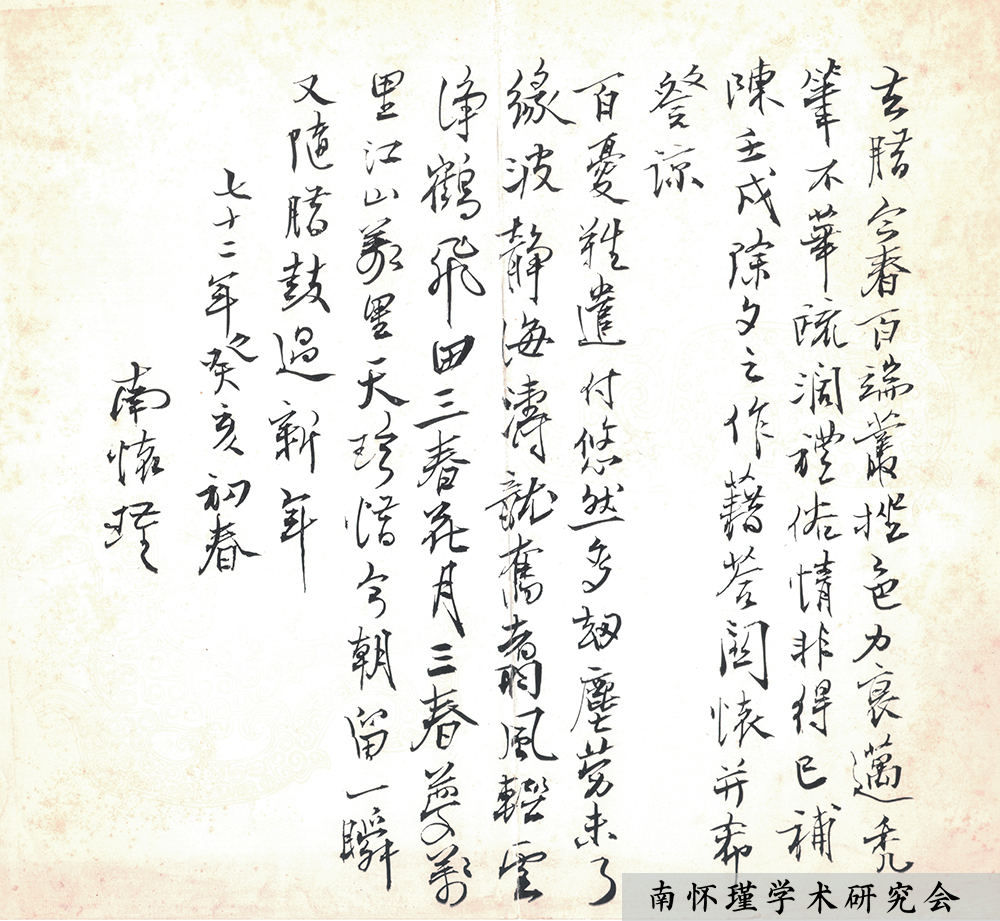 去腊今春百端叢脞色力衰邁禿
筆不華疏濶禮俗情非得已補
陳壬戌除夕之作藉荅関懷并希
詧諒
百憂難遣付悠然多劫塵勞未了
緣波靜海濤龍奮翥風輕雲
淨鶴飛田三春花月三春夢萬
里江山萬里天珍惜今朝留一瞬
又隨腊鼓過新年
七十二年之癸亥初春
南懷瑾
南怀瑾学术研究会